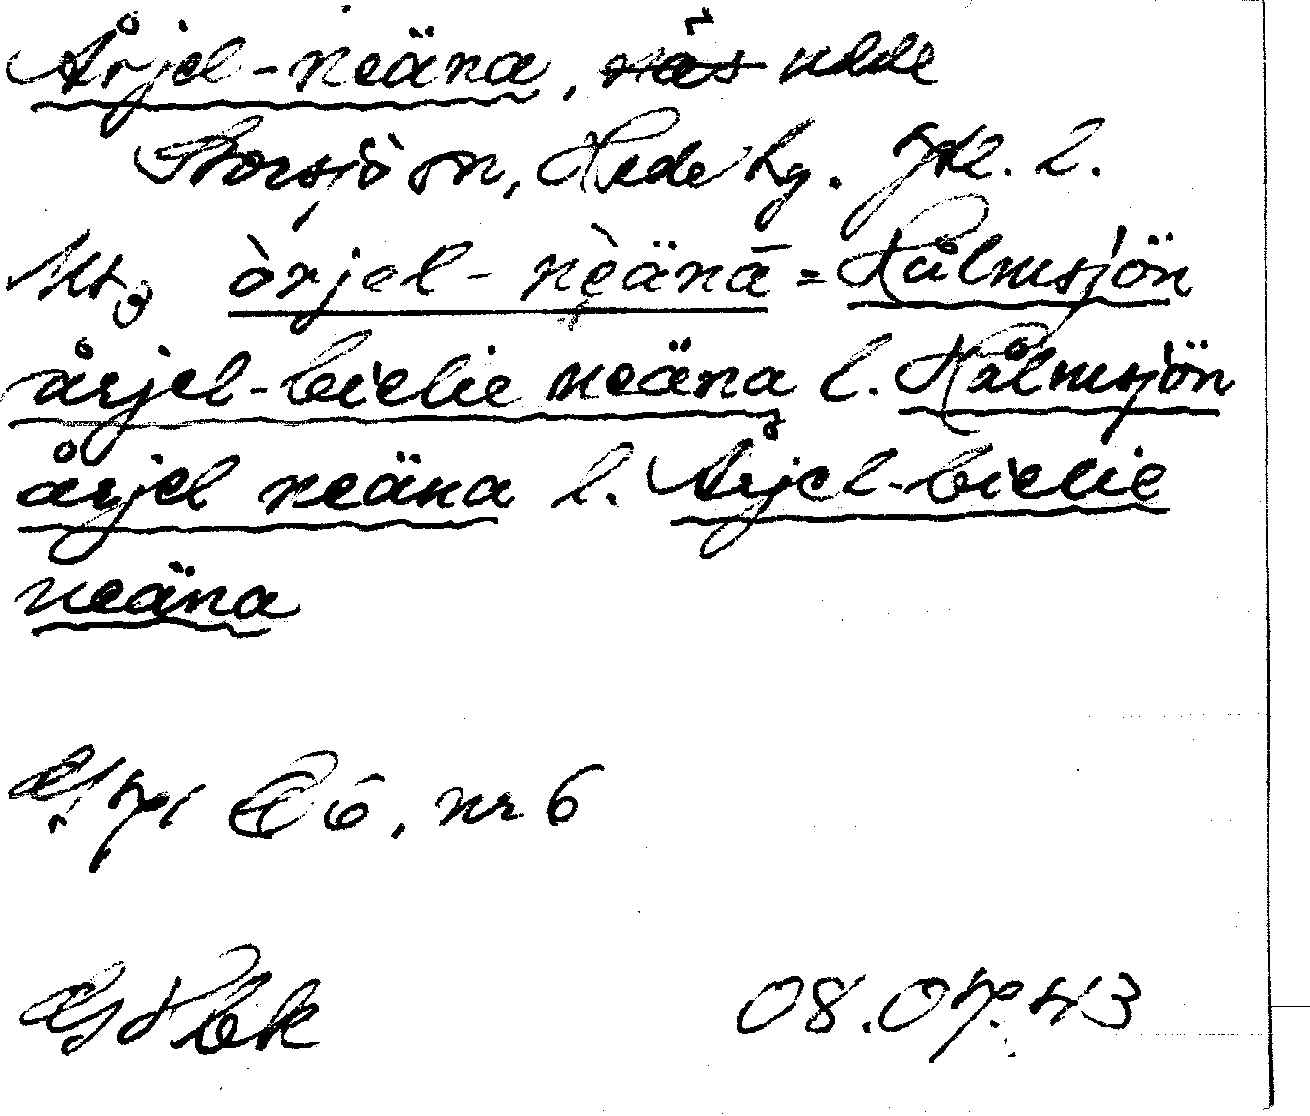 Årjel-neäna, näs udde
Storsjön, Hede hg. Jtl. l.
òrjel-neänā = Kålmsjön
årjel-bielie neäna l. Kålmsjön
årjel neäna l. Årjel-bielie
neäna
nr 6
08.07.43